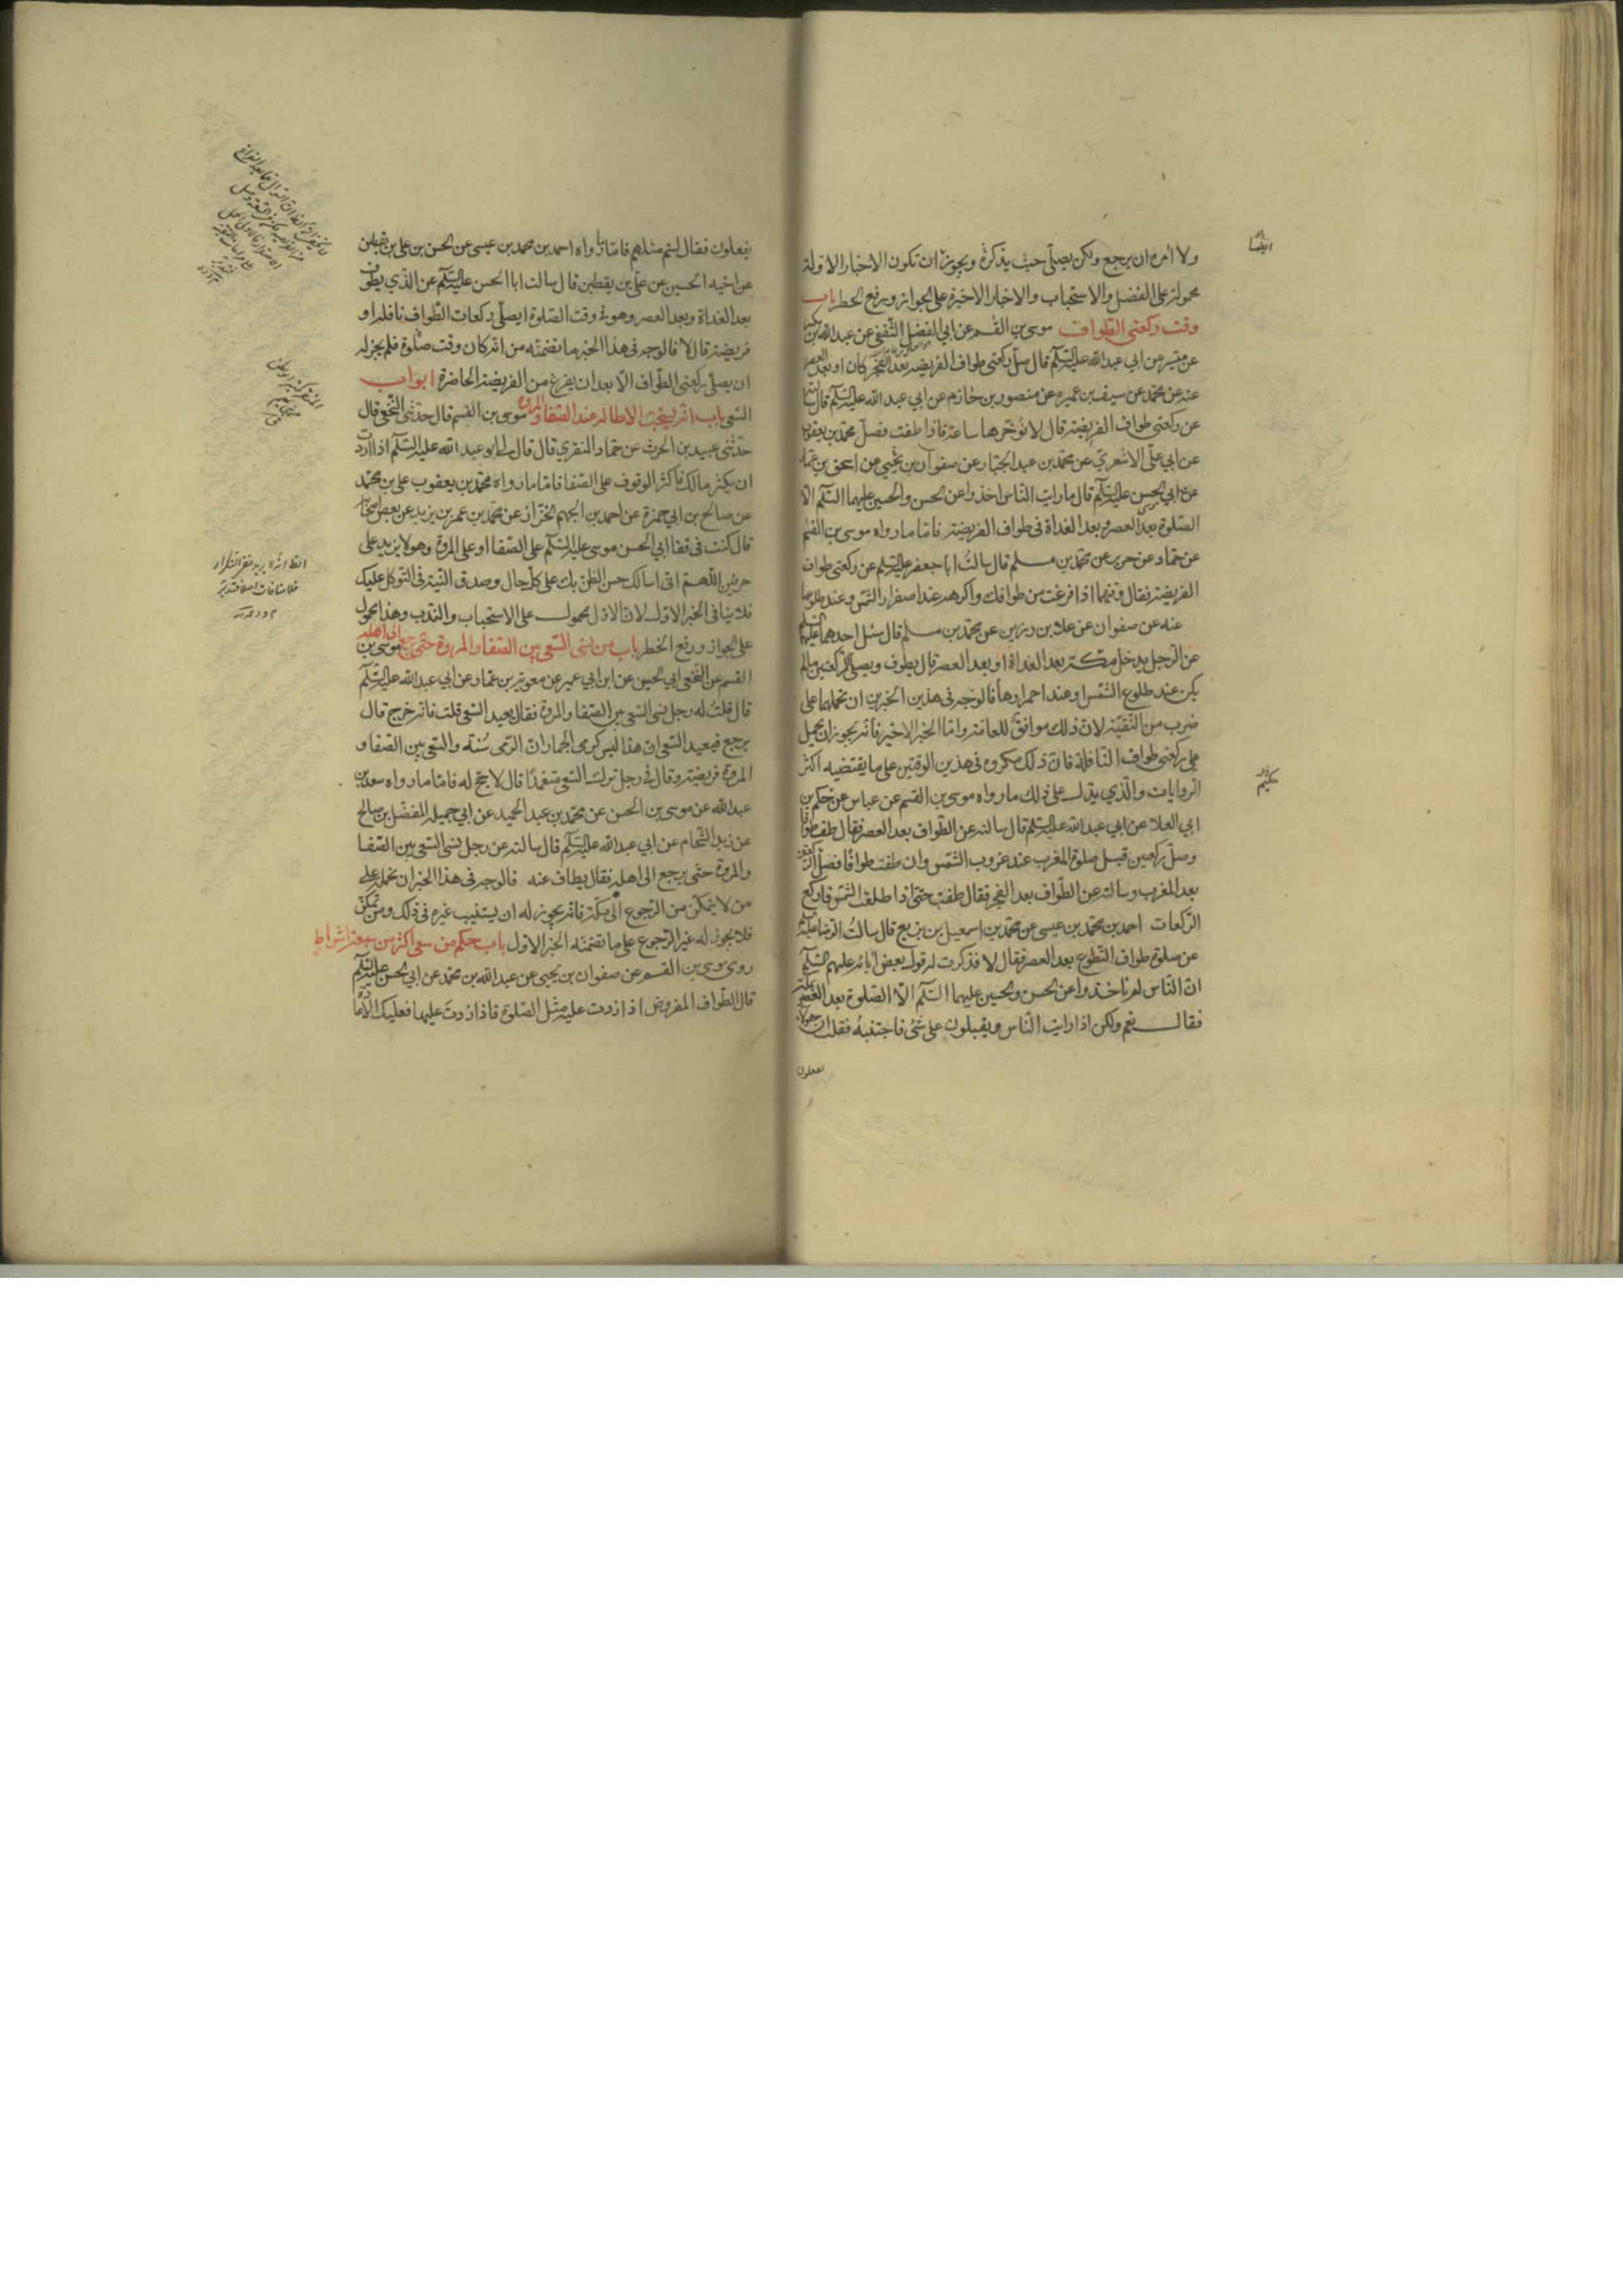 ولا آمره ان يرجع ولكن يصلّى حيث يذكره ويجوز ان تكون الاخبار الاوّلة
محمولة على الفضل والاستحباب والاخبار الاخيرة على الجواز ورفع الحظر باب
وقت ركعتى الطواف موسى بن القسم عن ابى الفضل الثقفى عن عبد الله بن بكير
عن ميسر عن ابى عبد الله عليه السّلم قال صلّ ركعتى طواف الفريضة بعد الفجر كان او بعد العصر
عنه عن محمّد عن سيف بن عميره عن منصور بن حازم عن ابى عبد الله عليه السّلم قال سألته
عن ركعتى طواف الفريضة قال لا تؤخّرها ساعة فاذا طفت فصلّ محمّد بن يعقوب
عن ابى علىّ الاشعرىّ عن محمّد بن عبد الجبّار عن صفوان بن يحيى عن اسحق بن عمّار
عن ابى الحسن عليه السّلم قال ما رايت النّاس اخذوا عن الحسن والحسين عليهما السّلم الّا
الصّلوة بعد العصر وبعد الغداة فى طواف الفريضة فامّا ما رواه موسى بن القسم
عن حمّاد عن حريز عن محمّد بن مسلم قال سالتُ ابا جعفر عليه السّلم عن ركعتى طواف
الفريضة فقال وقتهما اذا فرغت من طوافك واكرهه عند اصفرار الشّمس وعند طلوعها
عنه عن صفوان عن علا بن رزين عن محمّد بن مسلم قال سئل احدهما عليهما السّلم
عن الرّجل يدخل مكّة بعد الغداة او بعد العصر قال يطوف ويصلّى الرّكعتين ما لم
يكن عند طلوع الشّمس او عند احمرارها فالوجه فى هذين الخبرين ان نحملهما على
ضرب من التّقيّة لانّ ذلك موافق للعامّة وامّا الخبر الاخير فانّه يجوز ان يحمل
على ركعتى طواف النّافلة فانّ ذلك مكروه فى هذين الوقتين على ما يقتضيه اكثر
الرّوايات والّذى يدلّ على ذلك ما رواه موسى بن القسم عن عباس عن حكم بن
ابى العلا عن ابى عبد الله عليه السّلم قال سالته عن الطّواف بعد العصر فقال طف طوافا
وصلّ ركعتين قبل صلوة المغرب عند غروب الشّمس وان طفت طوافًا فصلّ الرّكعتين
بعد المغرب وسالته عن الطّواف بعد الفجر فقال طف حتّى اذا طلعت الشّمس فاركع
الرّكعات احمد بن محمّد بن عيسى عن محمّد بن اسمعيل بن بزيع قال سالتُ الرّضا عليه السّلم
عن صلوة طواف التّطوّع بعد العصر فقال لا فذكرت له قول بعض آبائه عليهم السّلم
انّ النّاس لم ياخذوا عن الحسن والحسين عليهما السّلم الّا الصّلوة بعد العصر بمكّة
فقال نعم ولكن اذا رايت النّاس ويقبلون على شئ فاجتنبه فقلت ان هولاء
يفعلون
ايضا
حكيم
يفعلون فقال لستم مثلهم فامّا ما رواه احمد بن محمد بن عيسى عن الحسن بن على بن يقطين
عن اخيه الحسين عن علىّ بن يقطين قال سالت ابا الحسن عليه السّلم عن الّذى يطوف
بعد الغداة وبعد العصر وهو فى وقت الصّلوة ايصلّى ركعات الطّواف نافلة او
فريضة قال لا فالوجه فى هذا الخبر ما تضمّنه من انّه كان وقت صلوة فلم يجز له
ان يصلّى ركعتى الطّواف الّا بعد ان يفرغ من الفريضة الحاضرة ابواب
السّعى باب انّه يستحبّ الاطالة عند الصّفا والمروة موسى بن القسم قال حدّثنى النّخعى قال
حدّثنى عبيد بن الحرث عن حمّاد المنقرى قال قال لى ابو عبد الله عليه السّلم اذا اردت
ان يكثر مالك فاكثر الوقوف على الصّفا فامّا ما رواه محمّد بن يعقوب على بن محمّد
عن صالح بن ابى حمزة عن احمد بن الجهم الخزّاز عن محمّد بن عمر بن يزيد عن بعض اصحابه
قال كنت فى قفا ابى الحسن موسى عليه السّلم على الصّفا او على المروة وهو لا يزيد على
حرفين اللّهمّ انّى اسالك حسن الظّنّ بك على كلّ حال وصدق النّيّة فى التّوكّل عليك
فلا ينافى الخبر الاوّل لانّ الاوّل محمول على الاستحباب والنّدب وهذا محمول
على الجواز ورفع الحظر باب من نسى السّعى بين الصّفا والمروة حتّى يرجع الى اهله موسى بن
القسم عن النّخعى ابى الحسين عن ابن ابى عمير عن معوية بن عمّار عن ابى عبد الله عليه السّلم
قال قلتُ له رجل نسى السّعى بين الصّفا والمروة فقال يعيد السّعى قلت فانّه خرج قال
يرجع فيعيد السّعى انّ هذا ليس كرمى الجمار انّ الرّمى سُنّة والسّعى بين الصّفا و
المروة فريضة وقال فى رجل ترك السّعى متعمّدًا قال لا حجّ له فامّا ما رواه سعد بن
عبد الله عن موسى بن الحسن عن محمّد بن عبد الحميد عن ابى جميلة المفضّل بن صالح
عن زيد الشّحّام عن ابى عبد الله عليه السّلم قال سالته عن رجل نسى السّعى بين الصّفا
والمروة حتّى يرجع الى اهله فقال يطاف عنه فالوجه فى هذا الخبر ان نحمله على
من لا يتمكّن من الرّجوع الى مكّة فانّه يجوز له ان يستنيب غيره فى ذلك ومن تمكّن
فلا يجوز له غير الرّجوع على ما تضمّنه الخبر الاوّل باب حكم من سعى اكثر من سبعة اشواط
روى موسى بن القسم عن صفوان بن يحيى عن عبد الله بن محمّد عن ابى الحسن عليه السّلم
قال الطّواف المفروض اذا زدت عليه مثل الصّلوة فاذا زدتَ عليها فعليك الاعادة